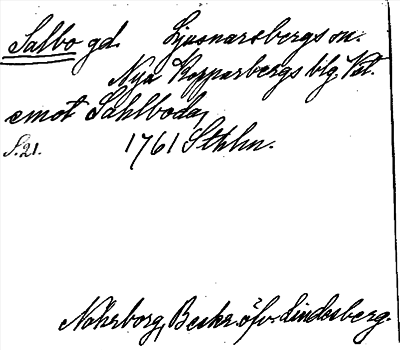 Salbo gd. Ljusnarsbergs sn.
Nya Kopparbergs blg, Vstl.
emot Sahlboda,
S.21. 1761 Sthlm.
Nohrborg, Beskr. öfv. Lindesberg.